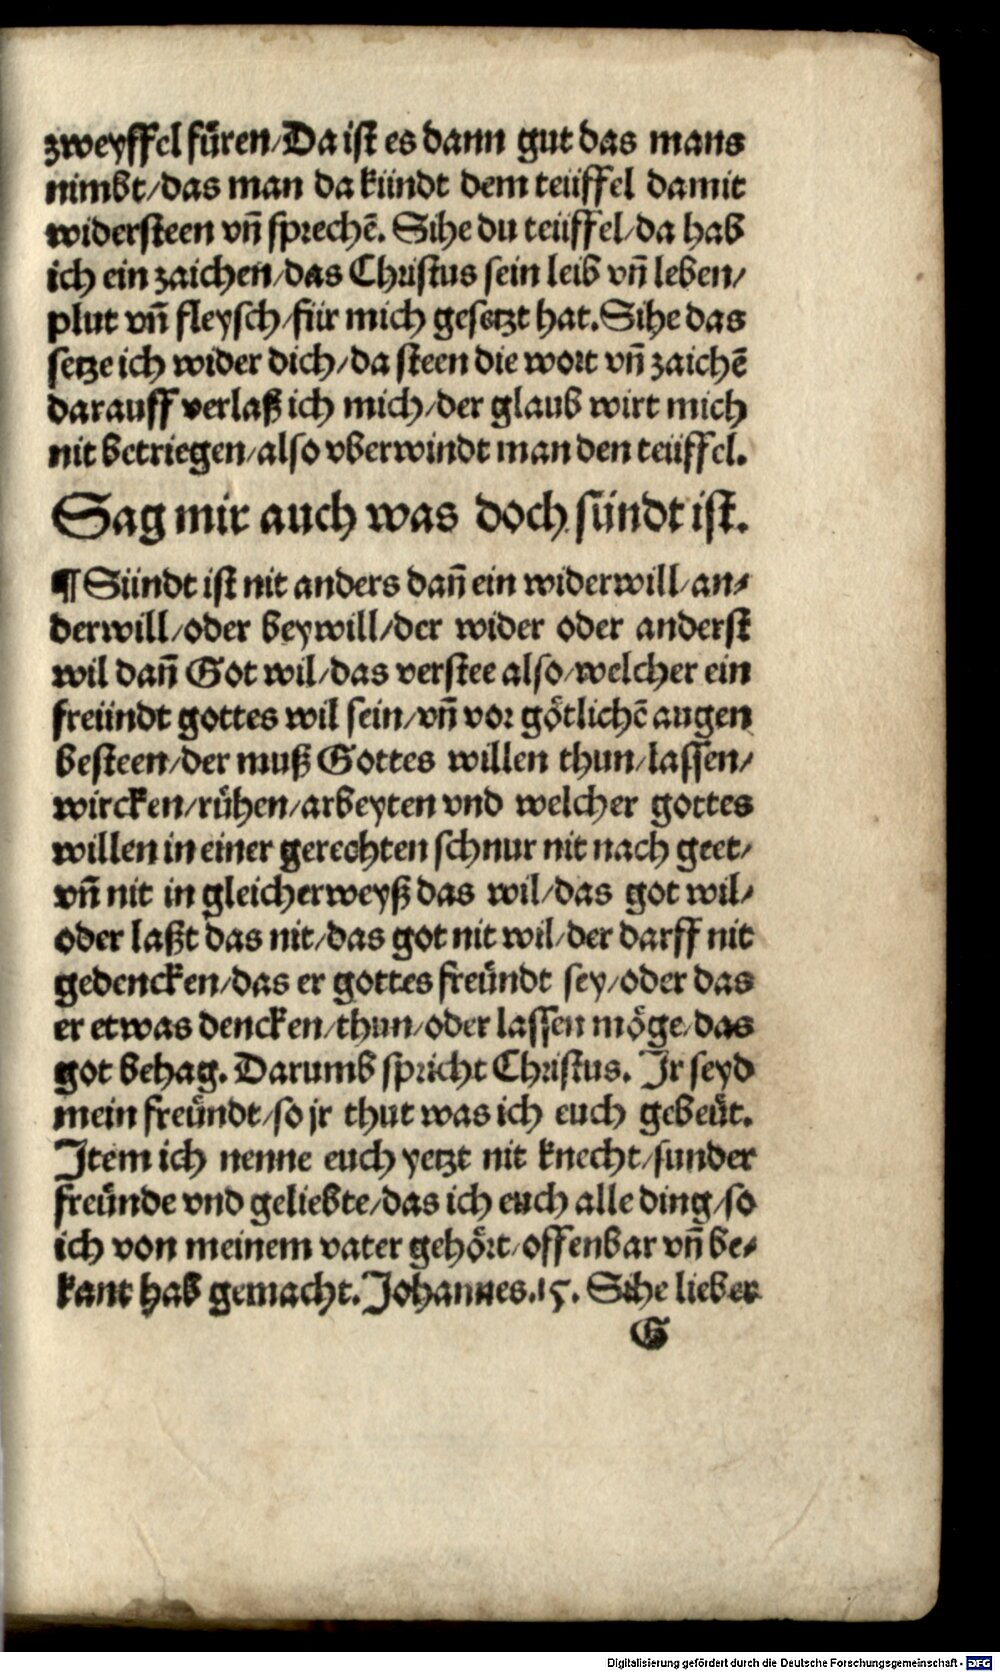 zweyffel fůren/Da ist es dann gut das mans
nimbt/das man da kündt dem teüffel damit
widersteen vñ sprechẽ. Sihe du teüffel/da hab
ich ein zaichen/das Christus sein leib vñ leben/
plut vñ fleysch/für mich gesetzt hat. Sihe das
setze ich wider dich/da steen die wort vñ zaichẽ
darauff verlaß ich mich/der glaub wirt mich
nit betriegen/also vberwindt man den teüffel.
Sag mir auch was doch sündt ist.
¶ Sündt ist nit anders dañ ein widerwill/an-
derwill/oder beywill/der wider oder anderst
wil dañ Got wil/das verstee also/welcher ein
freündt gottes wil sein/vñ vor götlichẽ augen
besteen/der muß Gottes willen thun/lassen/
wircken/růhen/arbeyten vnd welcher gottes
willen in einer gerechten schnur nit nach geet/
vñ nit in gleicherweyß das wil/das got wil/
oder laßt das nit/das got nit wil/der darff nit
gedencken/das er gottes freündt sey/oder das
er etwas dencken/thun/oder lassen möge/das
got behag. Darumb spricht Christus. Jr seyd
mein freündt/so jr thut was ich euch gebeüt.
Jtem ich nenne euch yetzt nit knecht/sunder
freünde vnd geliebte/das ich euch alle ding/so
ich von meinem vater gehört/offenbar vñ be-
kant hab gemacht. Johannes.15. Sihe lieber
G
Digitalisierung gefördert durch die Deutsche Forschungsgemeinschaft - DFG